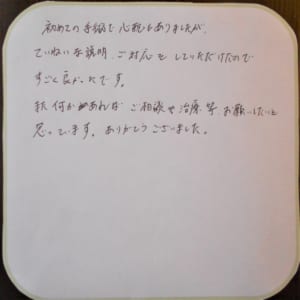 初めての手術で心配もありましたが、
ていねいな説明、ご対応をしていただけたので
すごく良かったです。
また何かあれば ご相談や治療等 お願いしたいと
思っています。ありがとうございました。